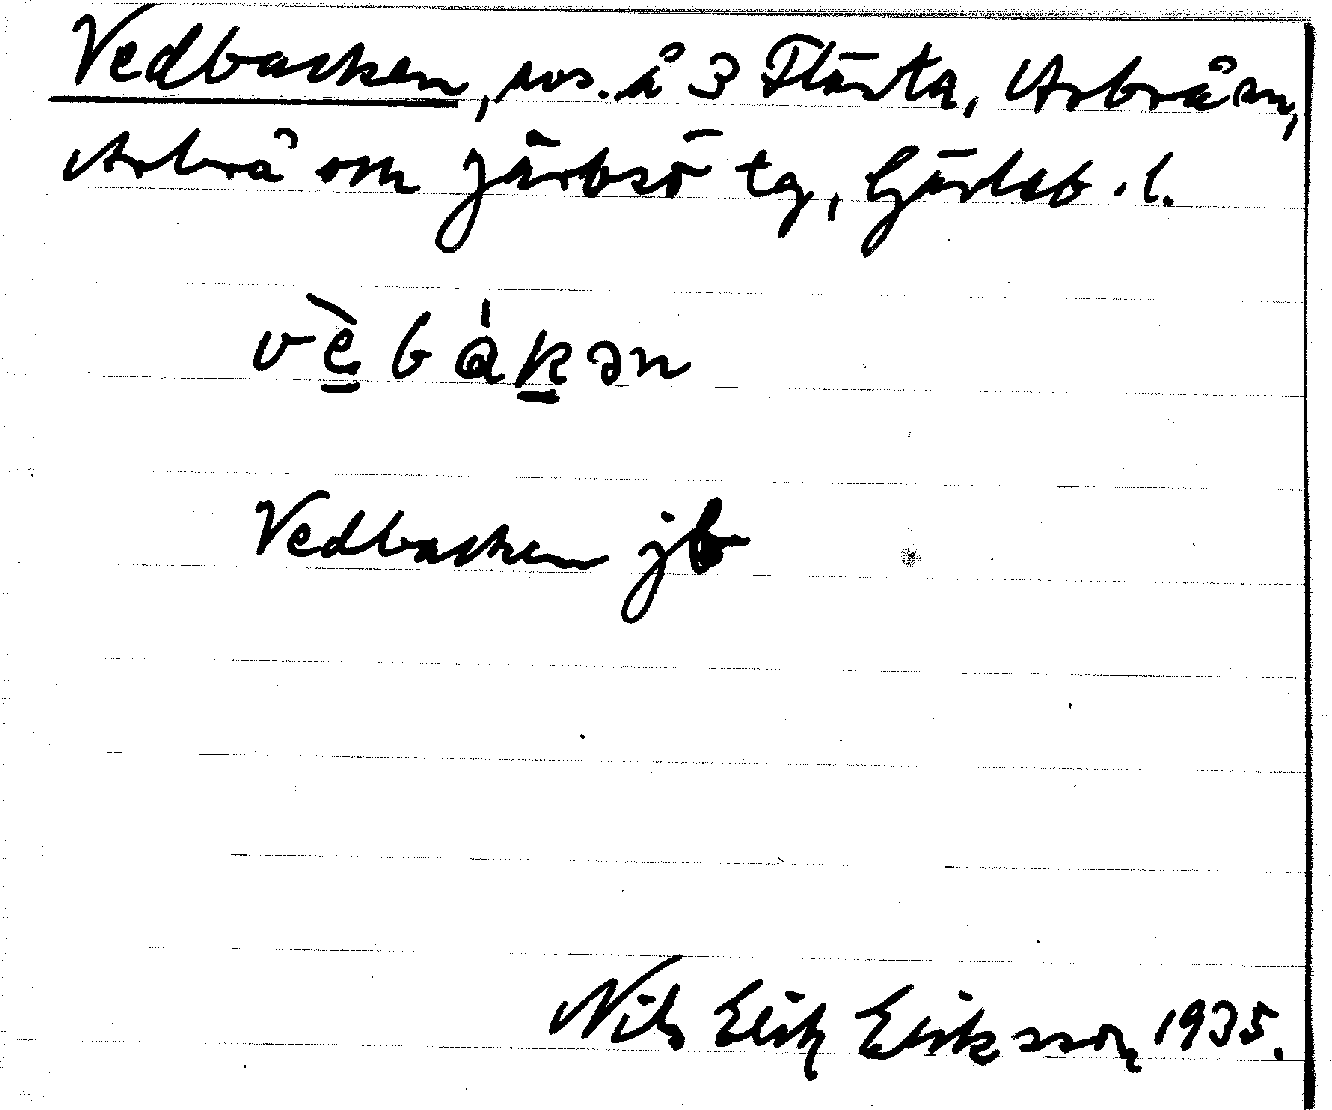 Vedbacken, avs. å 3 Flästa, Arbrå sn,
Arbrå om Järvsö tg, Gävleb. l.
vὲbákən
Vedbacken jb
Nils Erik Eriksson, 1935.